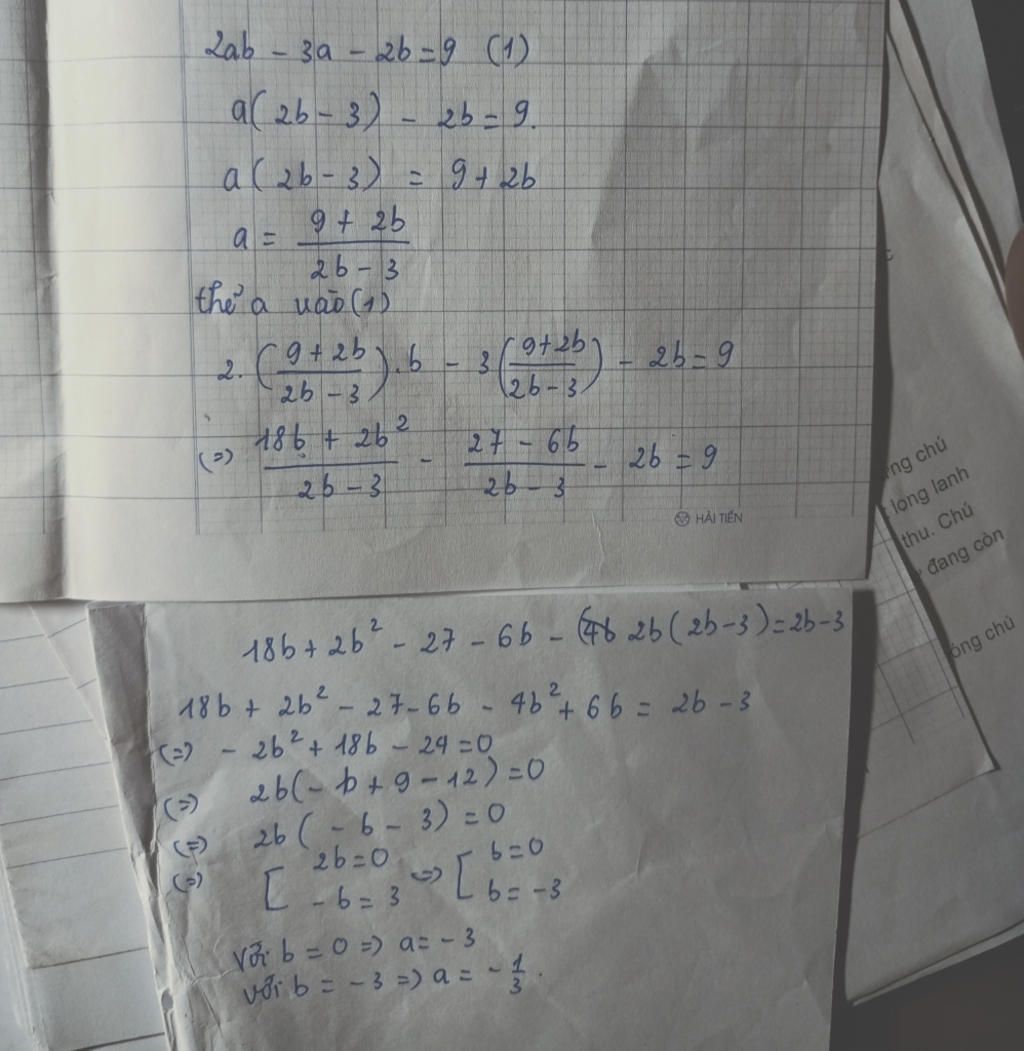 2ab - 3a - 2b = 9 (1)
a(2b - 3) - 2b = 9.
a(2b - 3) = 9 + 2b
a = \frac{9 + 2b}{2b - 3}
thế a vào (1)
2. (\frac{9 + 2b}{2b - 3}) . b - 3(\frac{9 + 2b}{2b - 3}) - 2b = 9
(=) \frac{18b + 2b^2}{2b - 3} - \frac{27 - 6b}{2b - 3} - 2b = 9
HẢI TIẾN
ng chú
long lanh
thu. Chú
đang còn
óng chú
18b + 2b^2 - 27 - 6b - 2b(2b - 3) = 2b - 3
18b + 2b^2 - 27 - 6b - 4b^2 + 6b = 2b - 3
(=) - 2b^2 + 18b - 24 = 0
(=) 2b(- b + 9 - 12) = 0
(=) 2b(- b - 3) = 0
(=) [ 2b = 0 (=) [ b = 0
- b = 3 b = -3
với b = 0 => a = - 3
với b = - 3 => a = - \frac{1}{3}.